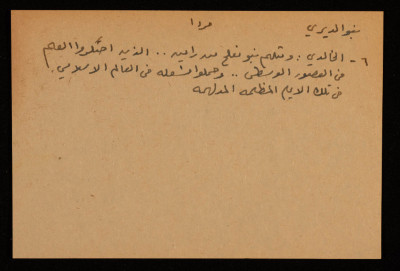 بنو الديري
مردا
٦ - الخالدي: ومثلهم بنو مفلح من رامين .. الذين احتكروا العلم
في العصور الوسطى .. وحملوا مشعله في العالم الاسلامي.
في تلك الايام المظلمه المدلهمه